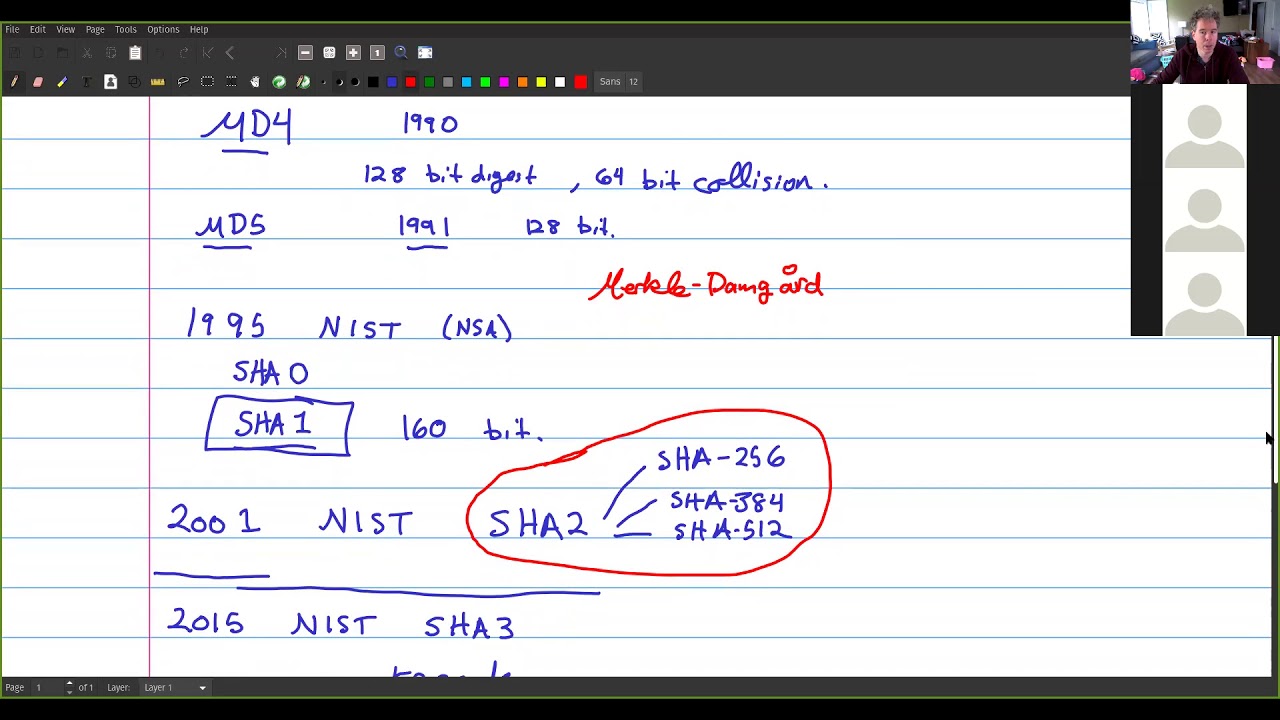 File Edit View Page Tools Options Help
Sans 12
MD4 1990
128 bit digest , 64 bit collision.
MD5 1991 128 bit.
Merkle-Damgård
1995 NIST (NSA)
SHA 0
SHA 1 160 bit.
SHA-256
SHA-384
2001 NIST SHA2
SHA-512
2015 NIST SHA3
Page 1 of 1 Layer: Layer 1